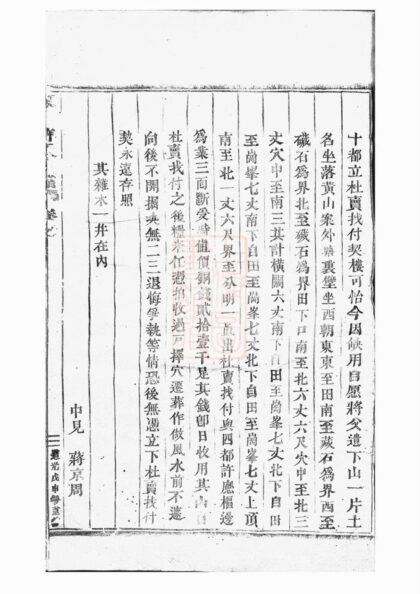 十都立杜賣找付契樓可怡今因缺用自愿將父遺下山一片土
名坐落黃山案外裏壟坐西朝東東至田南至藏石爲界西至
藏石爲界北至藏石爲界田下口南至北六丈六尺穴中至北三
丈穴中至南三其計橫闊六丈南下自田至崗峯七丈北下自田
至崗峯七丈南下自田至崗峯七丈北下自田至崗峯七丈上頂
南至北一丈六尺界至分明一直出杜賣找付與四都許應樞邊
爲業三面斷受時值價銅錢貳拾壹千足其錢卽日收用其山自
杜賣找付之後糧米任憑拍收過戶擇穴遷葬作做風水前不遺
向後不開揭吳無二三退悔爭執等情恐後無憑立下杜賣找付
契永遠存照
其雜木一并在內
中見 蔣京周
道光戊申